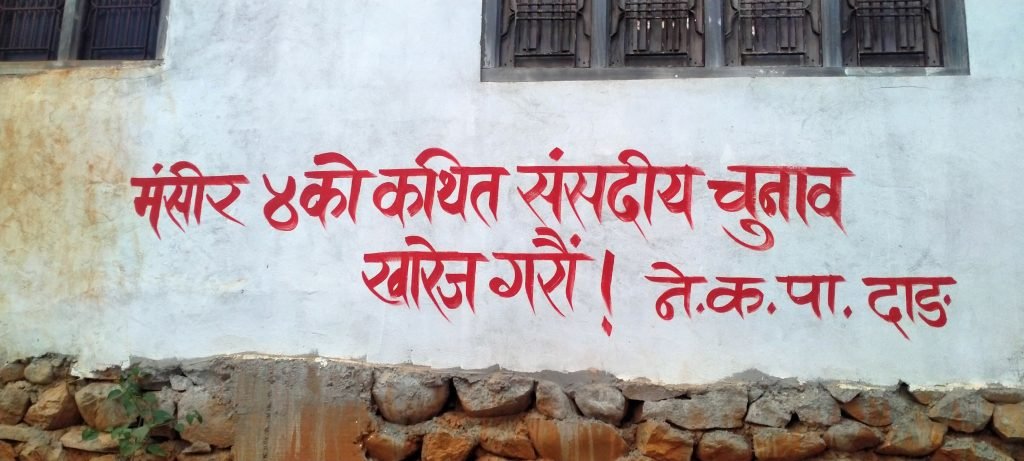 मंसीर ४को कथित संसदीय चुनाव
खारेज गरौं! ने.क.पा. दाङ